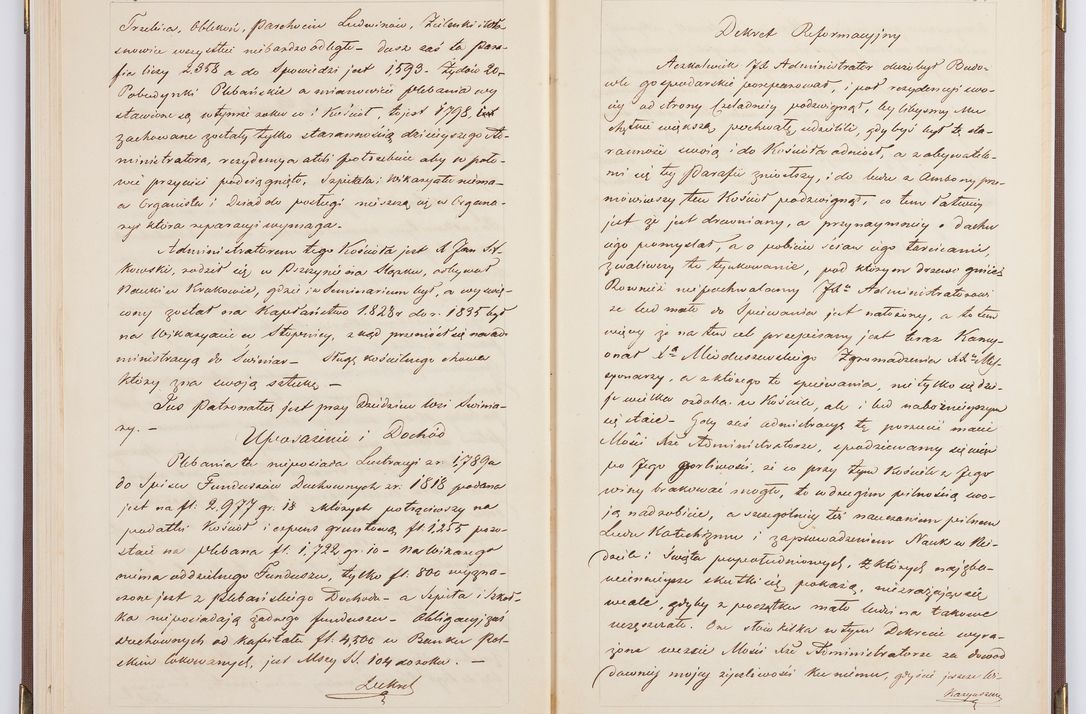 Trzebica, Oblekoń, Parchocin Ludwinów, Zielonki i Wło-
snowice wszystkie niebardzo odległe – dusz zaś ta para-
fia liczy 2,358 a do Spowiedzi jest 1,593 – Żydów 20 –
Pobudynki Plebańskie a mianowicie Plebania wy
stawione są w tymże roku co i Kościół, to jest 1798,
zachowane zostały tylko starannością dzisiejszego Ad-
ministratora, rezydencya atoli potrzebuie aby w poło-
wie przyciesi podciągnięto, Szpitala i Wikaryatu niema –
a Organista i Dziad do posługi mieszczą się w Organa-
ryi która reparacyi wymaga –
Administratorem tego Kościoła jest X Jan
kowski, rodził się w Pszczynie na Śląsku, odbywał
Nauki w Krakowie, gdzie i w Seminarium był, a wyświę-
cony został na Kapłaństwo 1828 r do r. 1835 był
na Wikaryacie w Stopnicy, zkąd przeniósł się na ad-
ministracyą do Świniar – Sługę Kościelnego chowa
który zna swoją sztukę –
Jus Patronatus jest przy Dziedzicu Wsi Świnia-
ry. –
Uposażenie i Dochód
Plebania ta nieposiada Lustracyi z r. 1789 a
do Spisu Funduszów Duchownych z r. 1818 podana
jest na fl. 2,977 gr. 18 z których potrąciwszy na
podatki Kościół i expens gruntową fl. 1,255 pozo-
staie na Plebana fl. 1,722, gr. 10 – Na Wikarego
niema oddzielnego Funduszu, tylko fl. 800 wyzna-
czone jest z Plebańskiego Dochodu – a Szpital i Szkoł-
ka nieposiadają żadnego funduszu – Obligacyi zaś
Duchownych od kapitału fl. 4,500 w Banku Pol-
skim lokowanych, jest Mszy SS. 104 do roku. –
Dekret
Dekret Reformacyjny
Aczkolwiek JX Administrator dużo był Budo-
wle gospodarskie poreperował, i pół rezydencyi swo-
iey od strony Czeladniey podzwignął, leczlibysmy Mu
chętnie większą pochwałę udzielili, gdybyś był tę sta-
ranność swoią i do Kościoła odniósł, a z obywatela-
mi się tey Parafii zniosłszy, i do ludu z Ambony prze-
mówiwszy ten Kościół podzwignął, co tem łatwiey
jest że jest drewniany, a przynaymniey o dachu
iego pomyślał, a o pobiciu ścian iego tarcicami,
zwaliwszy to tynkowanie, pod którym drzewo gnieie
Również niepochwalamy JXu Administratorowi
że lud mało do Śpiewania jest nałożony, a to tem
więcey że na ten cel przepisany jest teraz Kancy-
onał Xa Mioduszewskiego Zgromadzenia XX Mis-
syonarzy, a z którego to śpiewania, nie tylko się dzie-
je wielka ozdoba w Kościele, ale i lud nabożnieyszym
się staie – Gdy zaś administracyą tę porucić macie
Mości Xże Administratorze, spodziewamy się więc
po Jego gorliwości, że co przy tym Kościele z Jego
winy brakować mogło, to w drugim pilnością swo-
ją nadrobicie, a szczególniey też nauczaniem pilnem
Ludu Katechizmu i zaprowadzeniem Nauk w Nie-
dziele i Święta popołudniowych, z których nayzba-
wiennieysze skutki się pokażą, niezrażając się
wcale, gdyby z początku mało ludzi na takowe
uczęszczało. Oné słów kilka w tym Dekrecie wyra-
żone weźcie Mości Xże Administratorze za dowód
dawney moiey życzliwości ku niemu, gdyście jeszcze Wi-
karyuszem